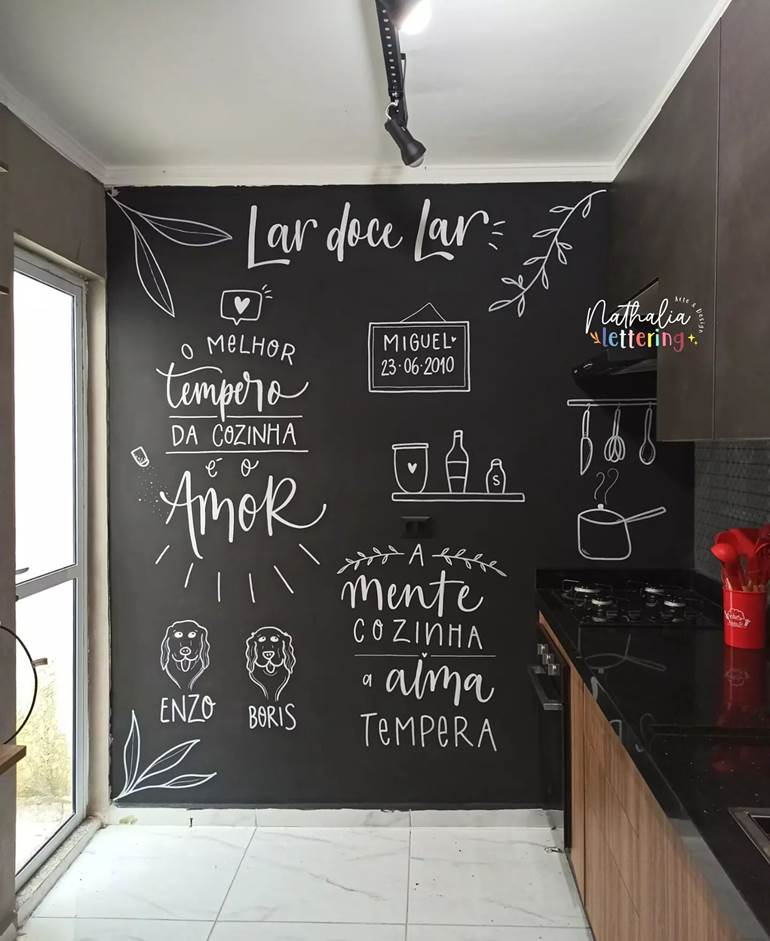 Lar doce Lar
O MELHOR
tempero
DA COZINHA
é o
AMOR
MIGUEL
23·06·2010
S
A
mente
COZINHA
a alma
TEMPERA
ENZO
BORIS
Nathalia
lettering
Arte & Design